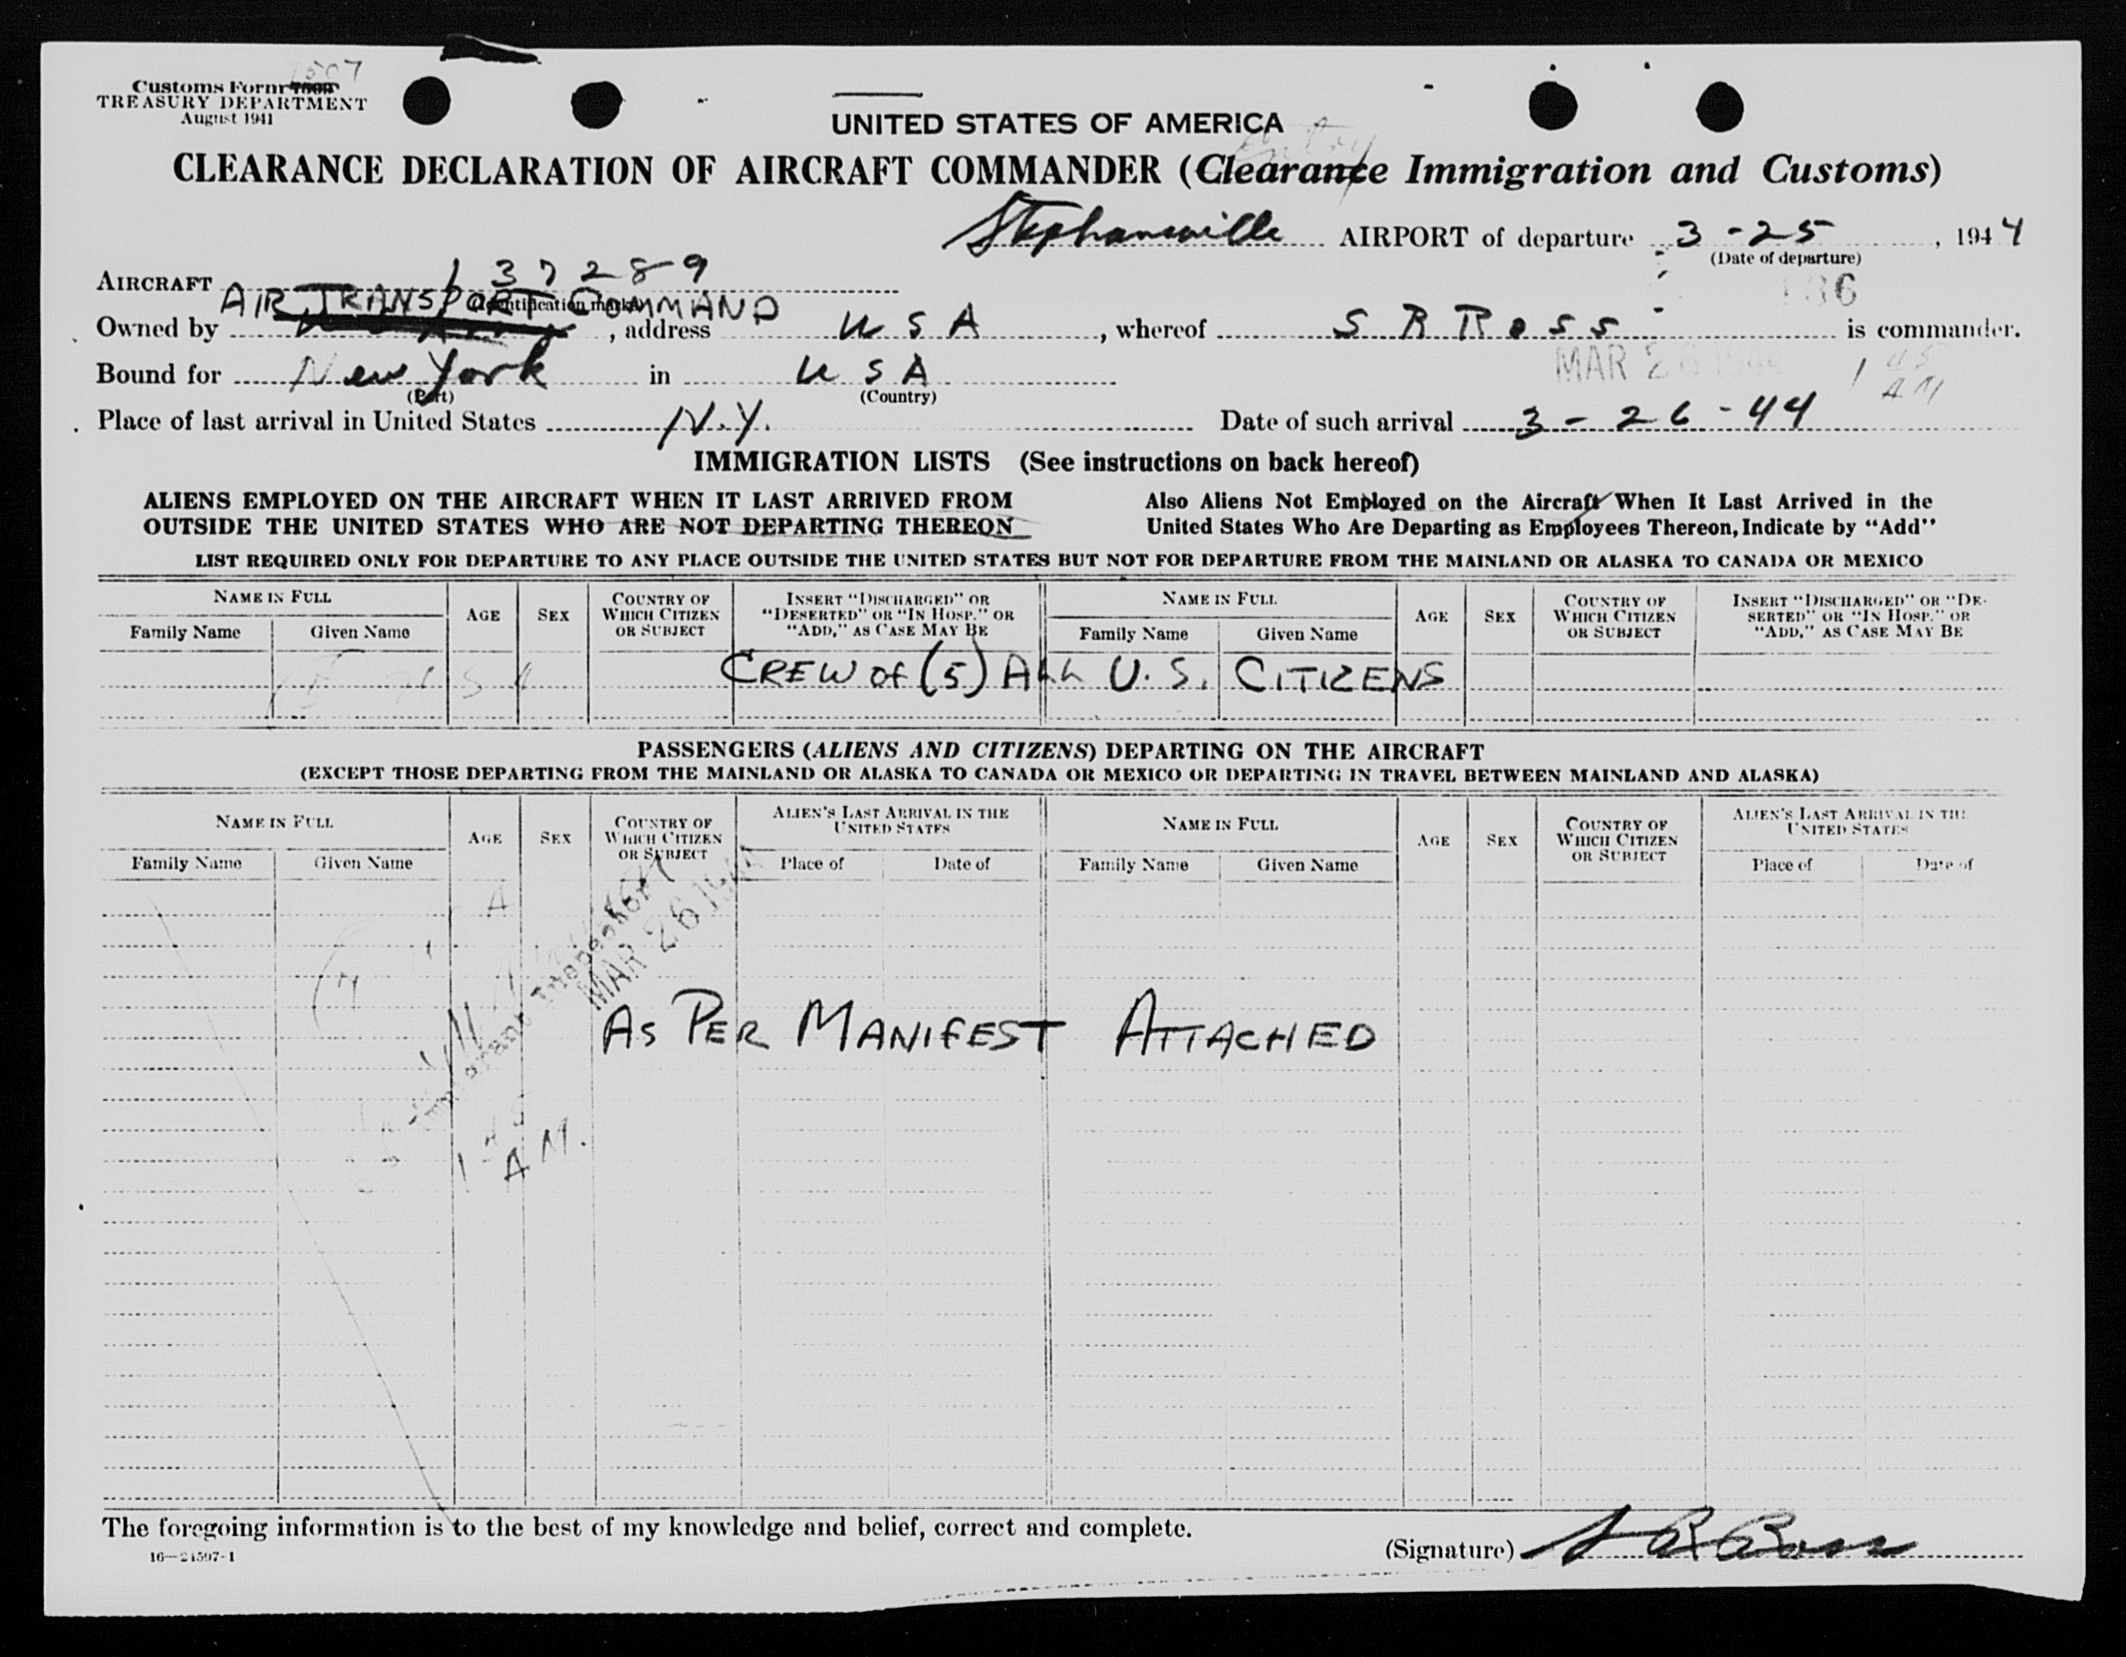 7507
Customs Form 7509
TREASURY DEPARTMENT
August 1941
UNITED STATES OF AMERICA
Entry
CLEARANCE DECLARATION OF AIRCRAFT COMMANDER (Clearance Immigration and Customs)
Stephansville AIRPORT of departure 3-25, 1944
(Date of departure)
AIRCRAFT 137289
(Identification marks)
186
AIR TRANSPORT COMMAND
Owned by , address U S A, whereof S R Ross is commander.
MAR 26 1944
1 45 AM
Bound for New York in U S A
(Port) (Country)
Place of last arrival in United States N.Y. Date of such arrival 3-26-44
IMMIGRATION LISTS (See instructions on back hereof)
ALIENS EMPLOYED ON THE AIRCRAFT WHEN IT LAST ARRIVED FROM
OUTSIDE THE UNITED STATES WHO ARE NOT DEPARTING THEREON
Also Aliens Not Employed on the Aircraft When It Last Arrived in the
United States Who Are Departing as Employees Thereon, Indicate by "Add"
LIST REQUIRED ONLY FOR DEPARTURE TO ANY PLACE OUTSIDE THE UNITED STATES BUT NOT FOR DEPARTURE FROM THE MAINLAND OR ALASKA TO CANADA OR MEXICO
NAME IN FULL
Family Name Given Name
AGE
SEX
COUNTRY OF
WHICH CITIZEN
OR SUBJECT
INSERT "DISCHARGED" OR
"DESERTED" OR "IN HOSP." OR
"ADD," AS CASE MAY BE
NAME IN FULL
Family Name Given Name
AGE
SEX
COUNTRY OF
WHICH CITIZEN
OR SUBJECT
INSERT "DISCHARGED" OR "DE-
SERTED" OR "IN HOSP." OR
"ADD," AS CASE MAY BE
CREW of (5) ALL U.S. CITIZENS
PASSENGERS (ALIENS AND CITIZENS) DEPARTING ON THE AIRCRAFT
(EXCEPT THOSE DEPARTING FROM THE MAINLAND OR ALASKA TO CANADA OR MEXICO OR DEPARTING IN TRAVEL BETWEEN MAINLAND AND ALASKA)
NAME IN FULL
Family Name Given Name
AGE
SEX
COUNTRY OF
WHICH CITIZEN
OR SUBJECT
ALIEN'S LAST ARRIVAL IN THE
UNITED STATES
Place of Date of
NAME IN FULL
Family Name Given Name
AGE
SEX
COUNTRY OF
WHICH CITIZEN
OR SUBJECT
ALIEN'S LAST ARRIVAL IN THE
UNITED STATES
Place of Date of
MAR 26 1944
Immigrant Inspector
AS PER MANIFEST ATTACHED
1-45
A.M.
The foregoing information is to the best of my knowledge and belief, correct and complete.
16—24597-1
(Signature) S R Ross